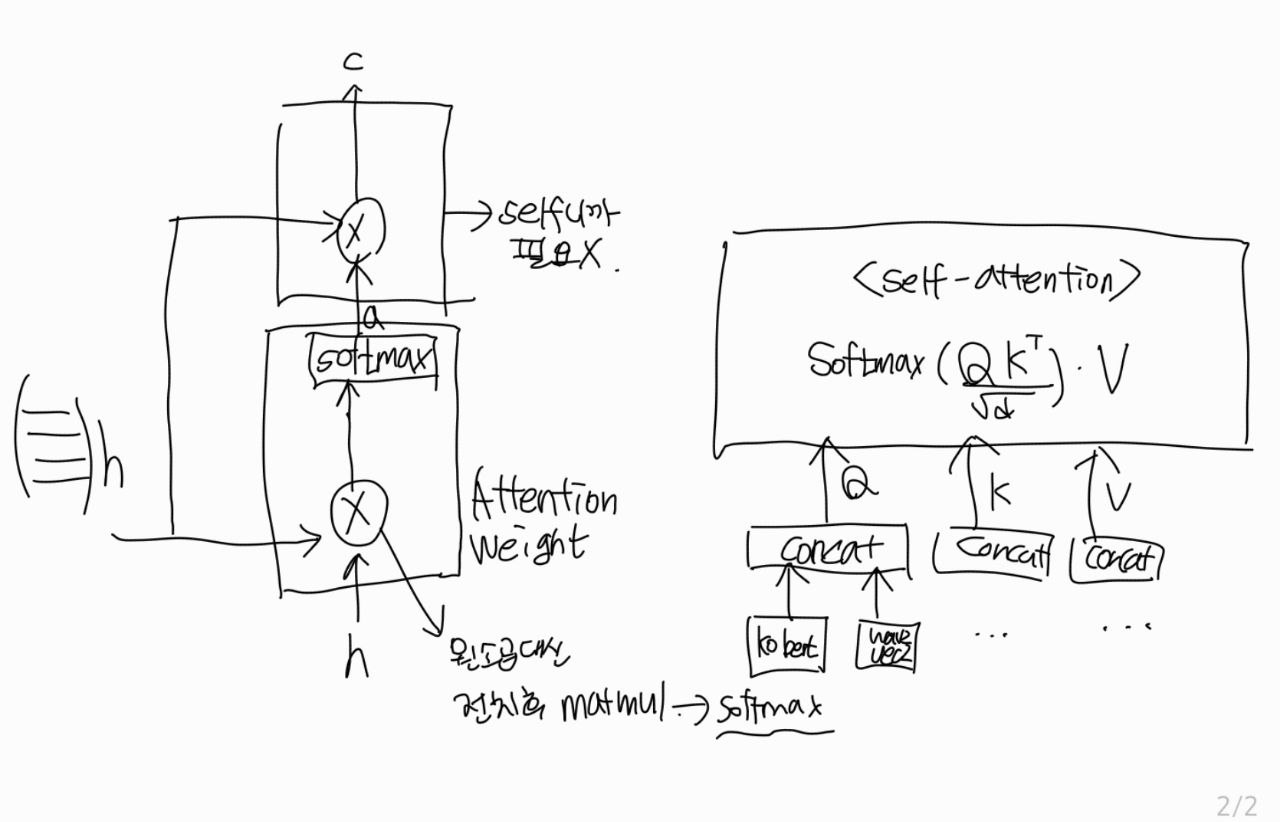 c
self니까
필요X.
a
softmax
h
Attention
Weight
h
원소곱대신
전치후 matmul → softmax
<self-attention>
Softmax(QK^T/√d)·V
Q
K
V
concat
concat
concat
kobert
wave
vec2
...
...
2/2